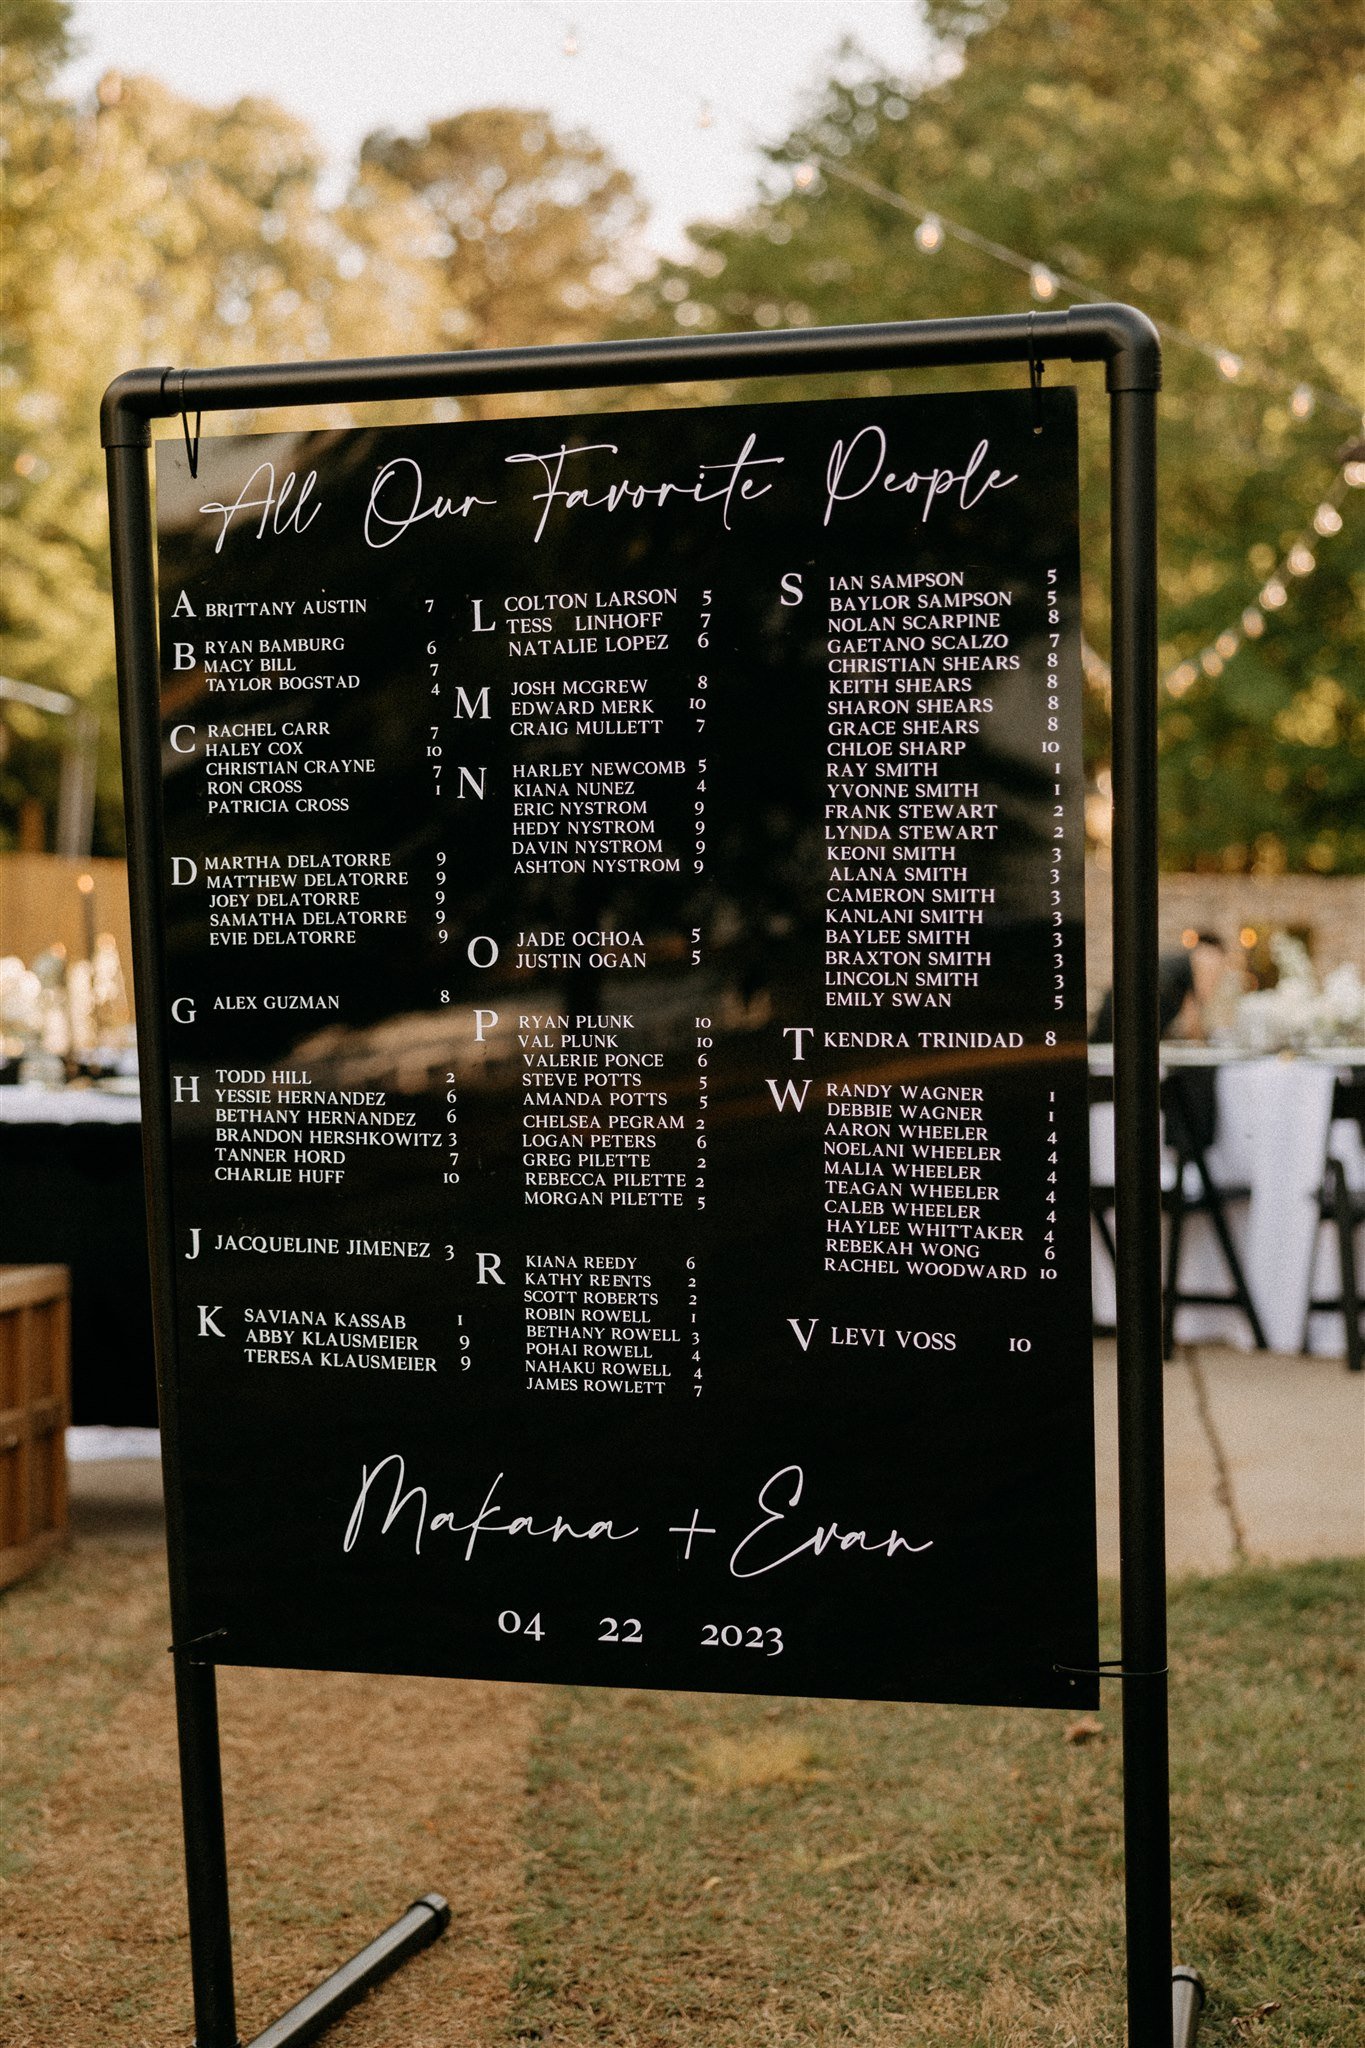 All Our Favorite People
A
BRITTANY AUSTIN 7
B
RYAN BAMBURG 6
MACY BILL 7
TAYLOR BOGSTAD 4
C
RACHEL CARR 7
HALEY COX 10
CHRISTIAN CRAYNE 7
RON CROSS 1
PATRICIA CROSS
D
MARTHA DELATORRE 9
MATTHEW DELATORRE 9
JOEY DELATORRE 9
SAMATHA DELATORRE 9
EVIE DELATORRE 9
G
ALEX GUZMAN 8
H
TODD HILL 2
YESSIE HERNANDEZ 6
BETHANY HERNANDEZ 6
BRANDON HERSHKOWITZ 3
TANNER HORD 7
CHARLIE HUFF 10
J
JACQUELINE JIMENEZ 3
K
SAVIANA KASSAB 1
ABBY KLAUSMEIER 9
TERESA KLAUSMEIER 9
L
COLTON LARSON 5
TESS LINHOFF 7
NATALIE LOPEZ 6
M
JOSH MCGREW 8
EDWARD MERK 10
CRAIG MULLETT 7
N
HARLEY NEWCOMB 5
KIANA NUNEZ 4
ERIC NYSTROM 9
HEDY NYSTROM 9
DAVIN NYSTROM 9
ASHTON NYSTROM 9
O
JADE OCHOA 5
JUSTIN OGAN 5
P
RYAN PLUNK 10
VAL PLUNK 10
VALERIE PONCE 6
STEVE POTTS 5
AMANDA POTTS 5
CHELSEA PEGRAM 2
LOGAN PETERS 6
GREG PILETTE 2
REBECCA PILETTE 2
MORGAN PILETTE 5
R
KIANA REEDY 6
KATHY REENTS 2
SCOTT ROBERTS 2
ROBIN ROWELL 1
BETHANY ROWELL 3
POHAI ROWELL 4
NAHAKU ROWELL 4
JAMES ROWLETT 7
S
IAN SAMPSON 5
BAYLOR SAMPSON 5
NOLAN SCARPINE 8
GAETANO SCALZO 7
CHRISTIAN SHEARS 8
KEITH SHEARS 8
SHARON SHEARS 8
GRACE SHEARS 8
CHLOE SHARP 10
RAY SMITH 1
YVONNE SMITH 1
FRANK STEWART 2
LYNDA STEWART 2
KEONI SMITH 3
ALANA SMITH 3
CAMERON SMITH 3
KANLANI SMITH 3
BAYLEE SMITH 3
BRAXTON SMITH 3
LINCOLN SMITH 3
EMILY SWAN 5
T
KENDRA TRINIDAD 8
W
RANDY WAGNER 1
DEBBIE WAGNER 1
AARON WHEELER 4
NOELANI WHEELER 4
MALIA WHEELER 4
TEAGAN WHEELER 4
CALEB WHEELER 4
HAYLEE WHITTAKER 4
REBEKAH WONG 6
RACHEL WOODWARD 10
V
LEVI VOSS 10
Makana + Evan
04 22 2023